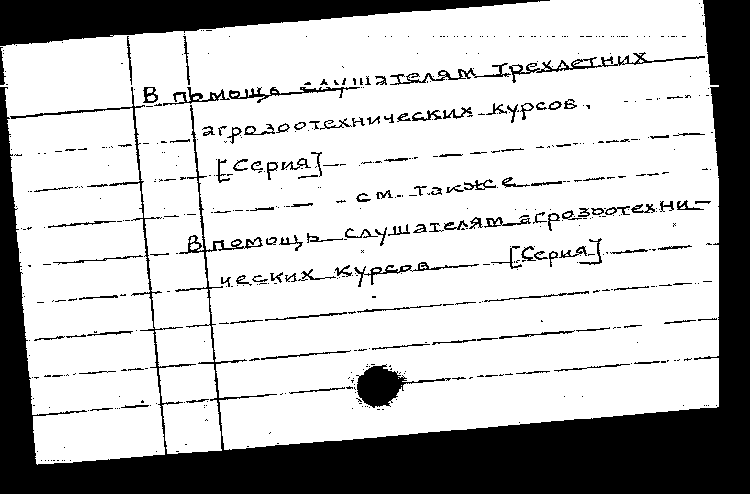 В помощь слушателям трехлетних
агрозоотехнических курсов.
[Серия]
см. также
В помощь слушателям агрозоотехни-
ческих курсов [Серия]